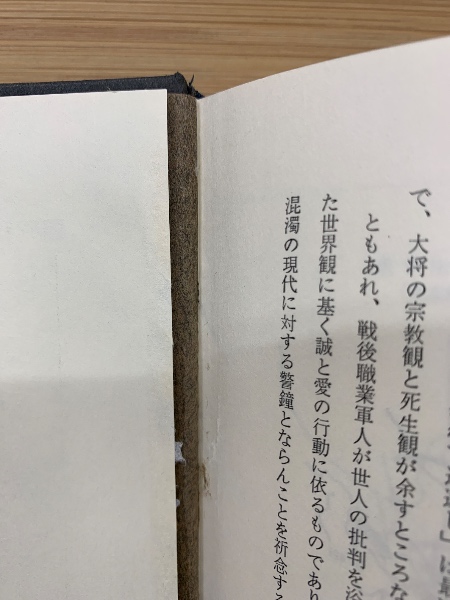 で、大将の宗教観と死生観が余すところな
ともあれ、戦後職業軍人が世人の批判を浴
た世界観に基く誠と愛の行動に依るものであり
混濁の現代に対する警鐘とならんことを祈念する